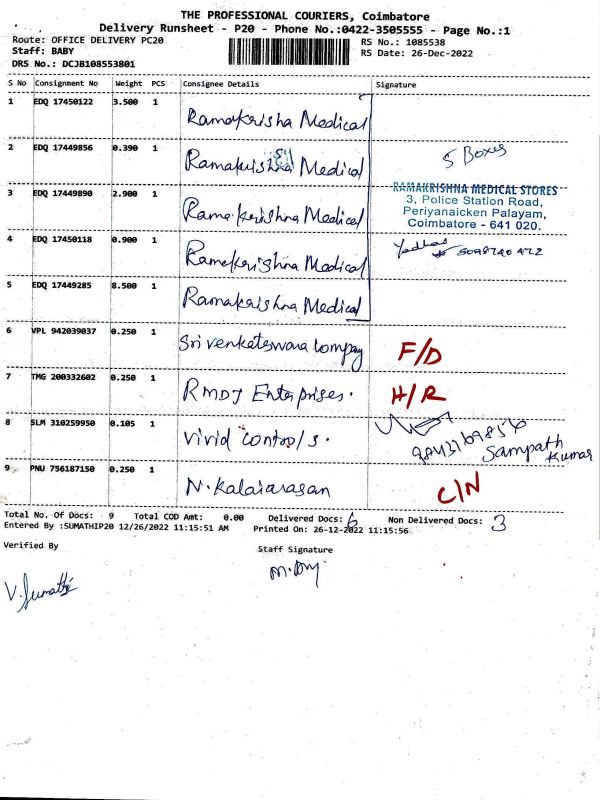 THE PROFESSIONAL COURIERS, Coimbatore
Delivery Runsheet - P20 - Phone No.:0422-3505555 - Page No.:1
Route: OFFICE DELIVERY PC20 RS No.: 1085538
Staff: BABY RS Date: 26-Dec-2022
DRS No.: DCJB108553801
S No Consignment No Weight PCS Consignee Details Signature
1 EDQ 17450122 3.500 1 Ramakrisha Medical
2 EDQ 17449856 0.390 1 Ramakrishna Medical 5 Boxes
3 EDQ 17449890 2.900 1 Ramakerishna Medical
RAMAKRISHNA MEDICAL STORES
3, Police Station Road,
Periyanaicken Palayam,
Coimbatore - 641 020.
4 EDQ 17450118 0.900 1 Ramakrishna Medical
5 EDQ 17449285 8.500 1 Ramakrishna Medical
6 VPL 942039037 0.250 1 Sri venketeswara Company F/D
7 TMG 200332602 0.250 1 RMDJ Enterprises. H/R
8 SLM 310259950 0.105 1 Vivid Controls. 9843769856
Sampath
Kumar
9 PNU 756187150 0.250 1 N.Kalaiarasan C/N
Total No. Of Docs: 9 Total COD Amt: 0.00 Delivered Docs: 6 Non Delivered Docs: 3
Entered By :SUMATHIP20 12/26/2022 11:15:51 AM Printed On: 26-12-2022 11:15:56
Verified By Staff Signature
V. Sumathi